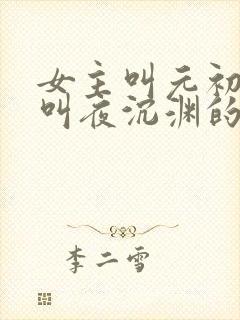 女主叫元初
叫夜沉渊的
李二雪